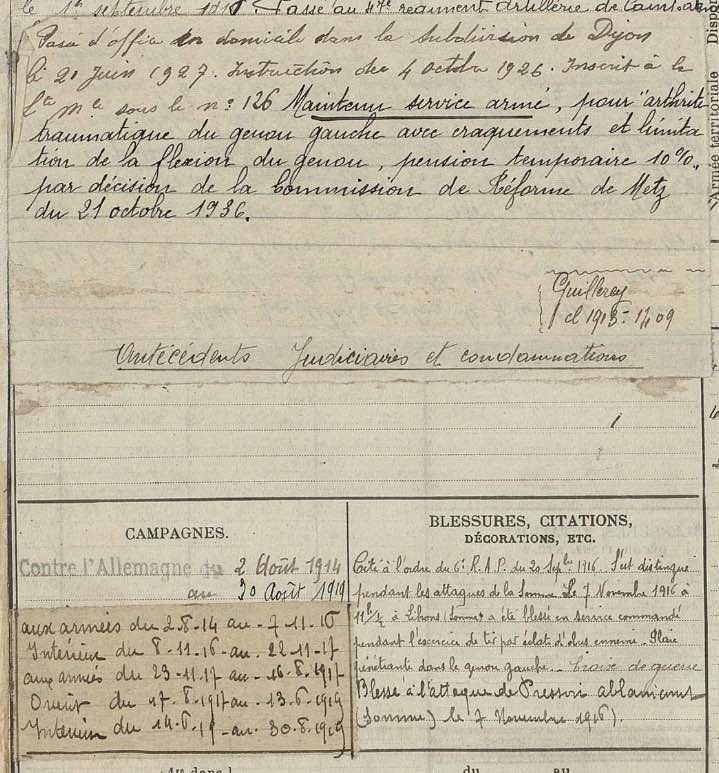 le 1er septembre Passé au 47e régiment d'artillerie de Campagne
Passé d'office en domicile dans la subdivision de Dijon
le 20 Juin 1927. Instruction du 4 octobre 1926. Inscrit à la
sous le n° 126 Maintenu service armé, pour "arthrite
traumatique du genou gauche avec craquements et limita
tion de la flexion du genou, pension temporaire 10%,
par décision de la Commission de Réforme de Metz
du 21 octobre 1936.
Guillerey
cl 1913 - 1409
Antécédents Judiciaires et condamnations
CAMPAGNES.
Contre l'Allemagne du 2 Août 1914
au 30 Août 1919
aux armées du 2-8-14 au - 7-11-16
Intérieur du 8-11-16 - au. 22-11-17
aux armées du 23-11-17 au - 16-8-1917
Orient du 17-8-1917 au - 13-6-1919
Intérieur du 14-6-19 - au. 30.8.1919
BLESSURES, CITATIONS,
DÉCORATIONS, ETC.
Cité à l'ordre du 6e R.A.P. du 20 Septbre 1916. S'est distingué
pendant les attaques de la Somme. Le 7 Novembre 1916 à
11h 1/2 à Lihons (Somme) a été blessé en service commandé
pendant l'exercice de tir par éclat d'obus ennemi - Plaie
pénétrante dans le genou gauche. - Croix de guerre
Blessé à l'attaque de Pressoir ablaincourt
(Somme) le 7 Novembre 1916).
Armée territoriale
du au